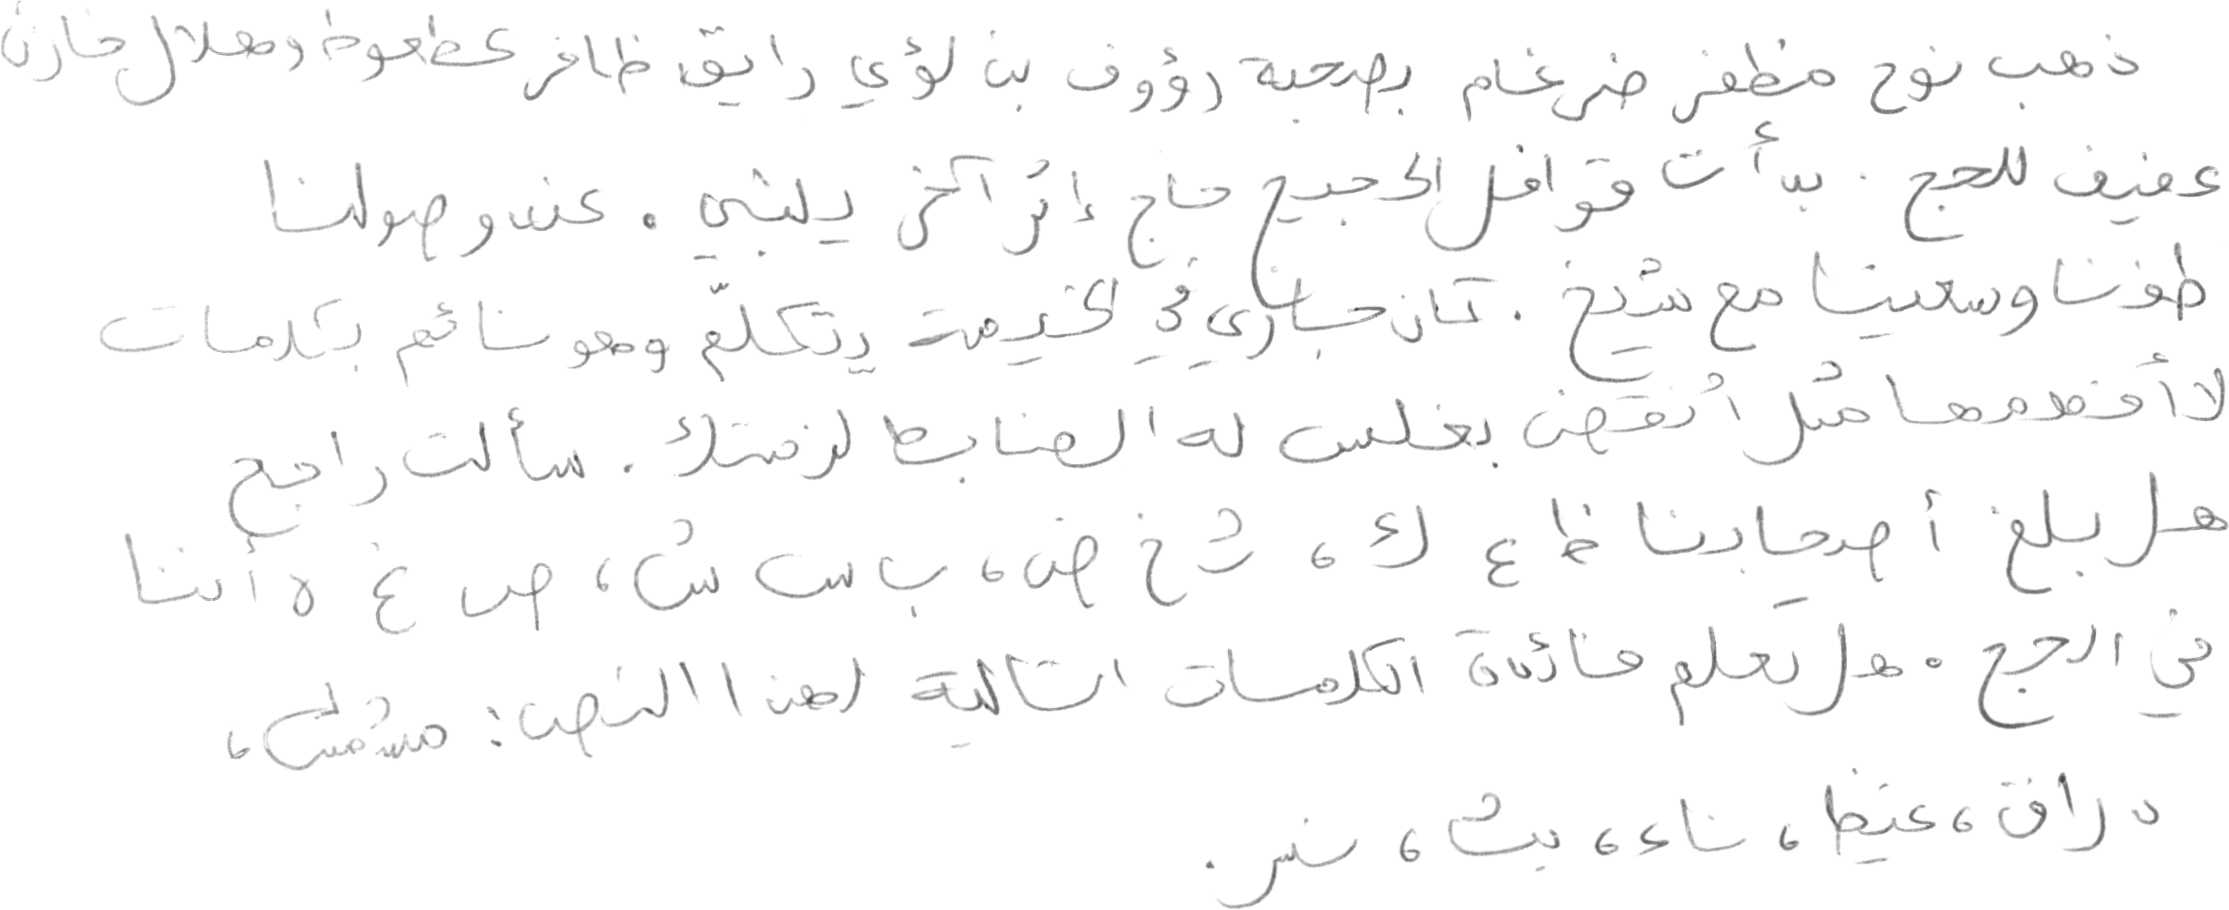 ذهب نوح مظفر ضرغام بصحبة رؤوف بن لؤي رايق ظافر عطعوط وهلال خازن
عفيف للحج. بدأت قوافل الحجيج حاج إثر آخر يلبي. عند وصولنا
طفنا وسعينا مع شيخ. كان جاري في الخيمة يتكلّم وهو نائم بكلمات
لا أفهمها مثل أنقض بغلس له الضابط لزمتك. سألت راجح
هل بلغ أصحابنا ظ ع ك، ث خ ض، ب س ش، ص غ ه أننا
في الحج. هل تعلم فائدة الكلمات التالية لهذا النص: مشمش،
دراق، غيظ، ناء، بث، نسر.